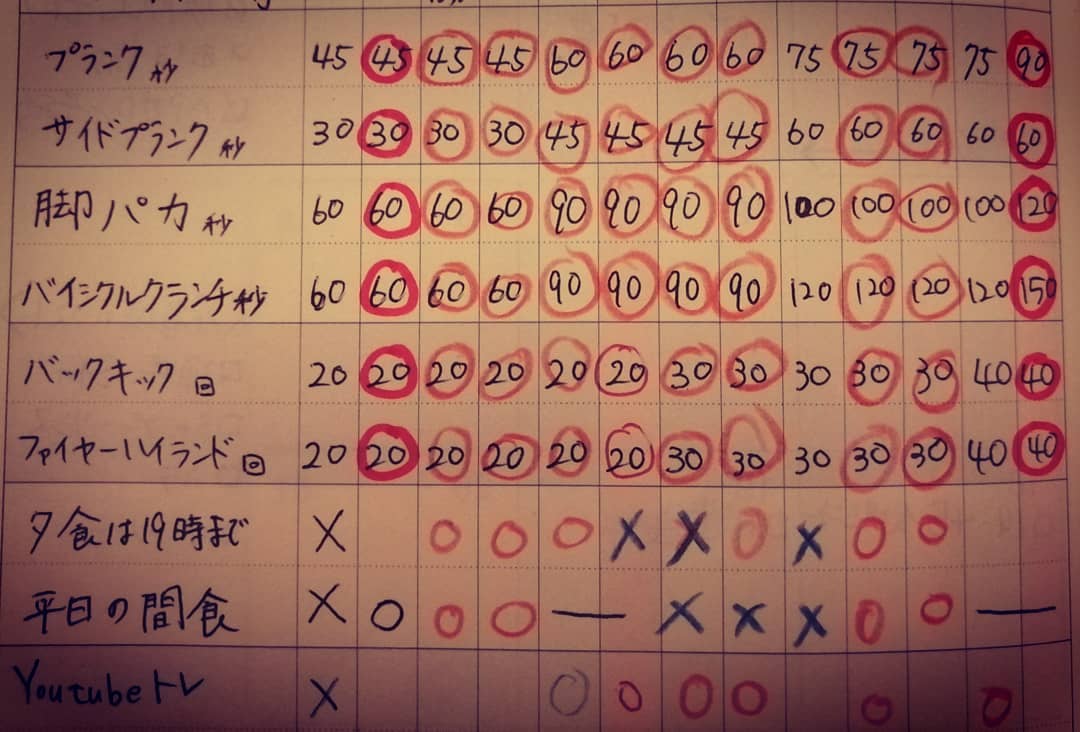 プランク秒 45 45 45 45 60 60 60 60 75 75 75 75 90
サイドプランク秒 30 30 30 30 45 45 45 45 60 60 60 60 60
脚パカ秒 60 60 60 60 90 90 90 90 100 100 100 100 120
バイシクルクランチ秒 60 60 60 60 90 90 90 90 120 120 120 120 150
バックキック回 20 20 20 20 20 20 30 30 30 30 30 40 40
ファイヤーハイランド回 20 20 20 20 20 20 30 30 30 30 30 40 40
夕食は19時まで × ○ ○ ○ × × ○ × ○ ○
平日の間食 × ○ ○ ○ — × × × ○ ○ —
Youtubeトレ × ○ ○ ○ ○ ○ ○